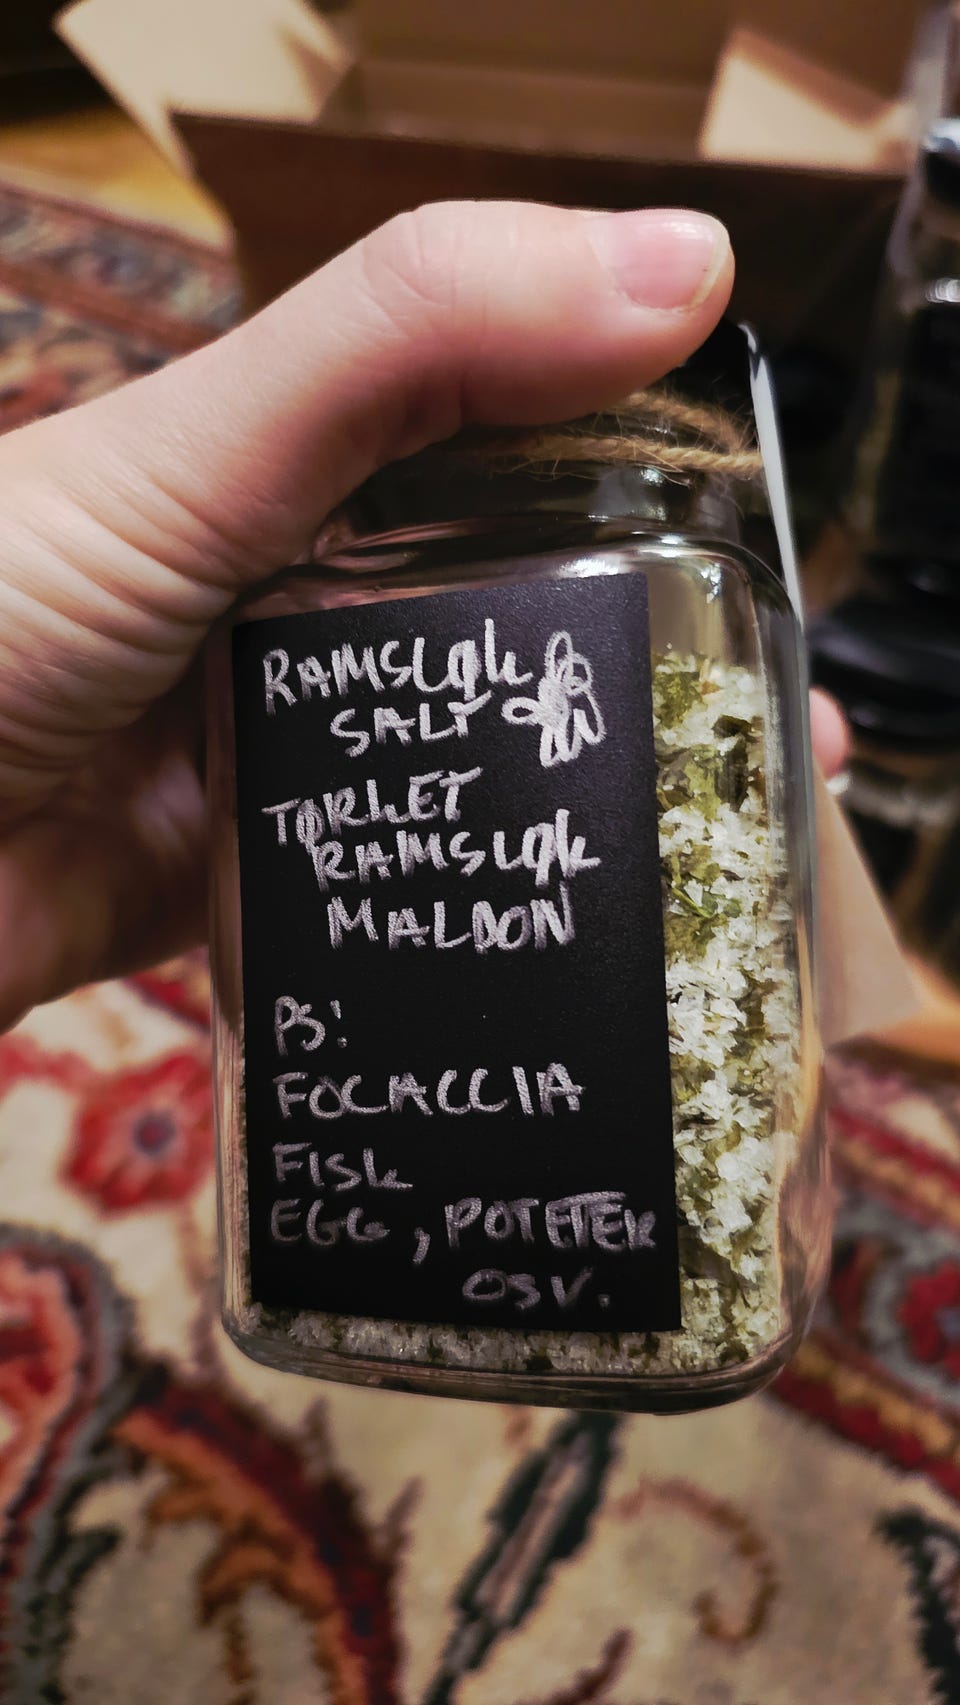 RAMSLØK
SALT
TØRKET
RAMSLØK
MALDON
PS:
FOCACCIA
FISK
EGG, POTETER
OSV.